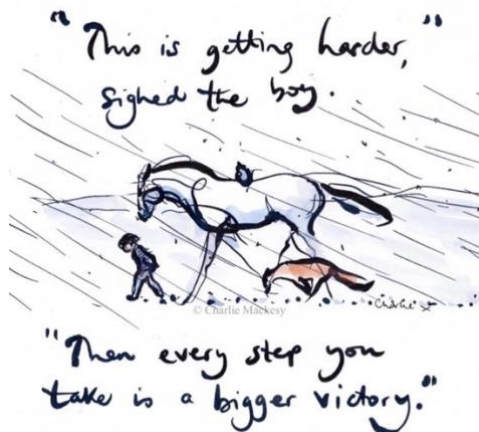 "This is getting harder,"
sighed the boy.
© Charlie Mackesy
"Then every step you
take is a bigger victory."